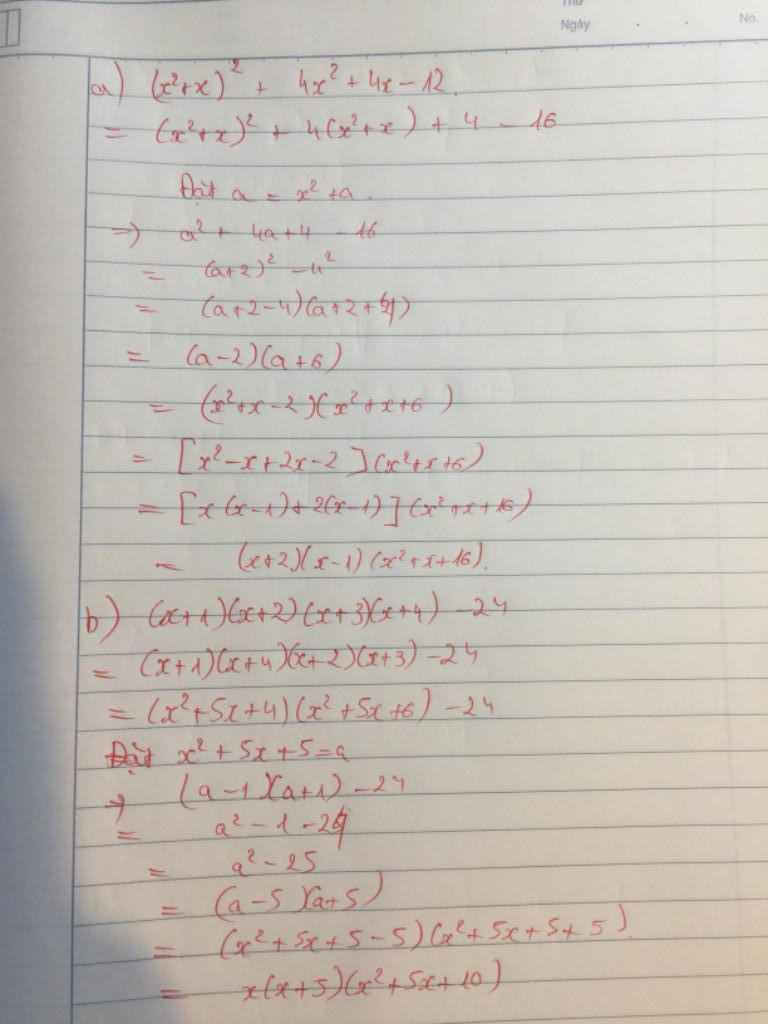 Thứ
Ngày . . No.
a) (x²+x)² + 4x² + 4x - 12
= (x²+x)² + 4(x²+x) + 4 - 16
Đặt a = x² + a.
=> a² + 4a + 4 - 16
= (a+2)² - 4²
= (a+2-4)(a+2+4)
= (a-2)(a+6)
= (x²+x-2)(x²+x+6)
= [x²-x+2x-2](x²+x+6)
= [x(x-1)+2(x-1)](x²+x+16)
= (x+2)(x-1)(x²+x+16).
b) (x+1)(x+2)(x+3)(x+4) - 24
= (x+1)(x+4)(x+2)(x+3) - 24
= (x²+5x+4)(x²+5x+6) - 24
Đặt x² + 5x + 5 = a
=> (a-1)(a+1) - 24
= a² - 1 - 24
= a² - 25
= (a-5)(a+5)
= (x²+5x+5-5)(x²+5x+5+5).
= x(x+5)(x²+5x+10)